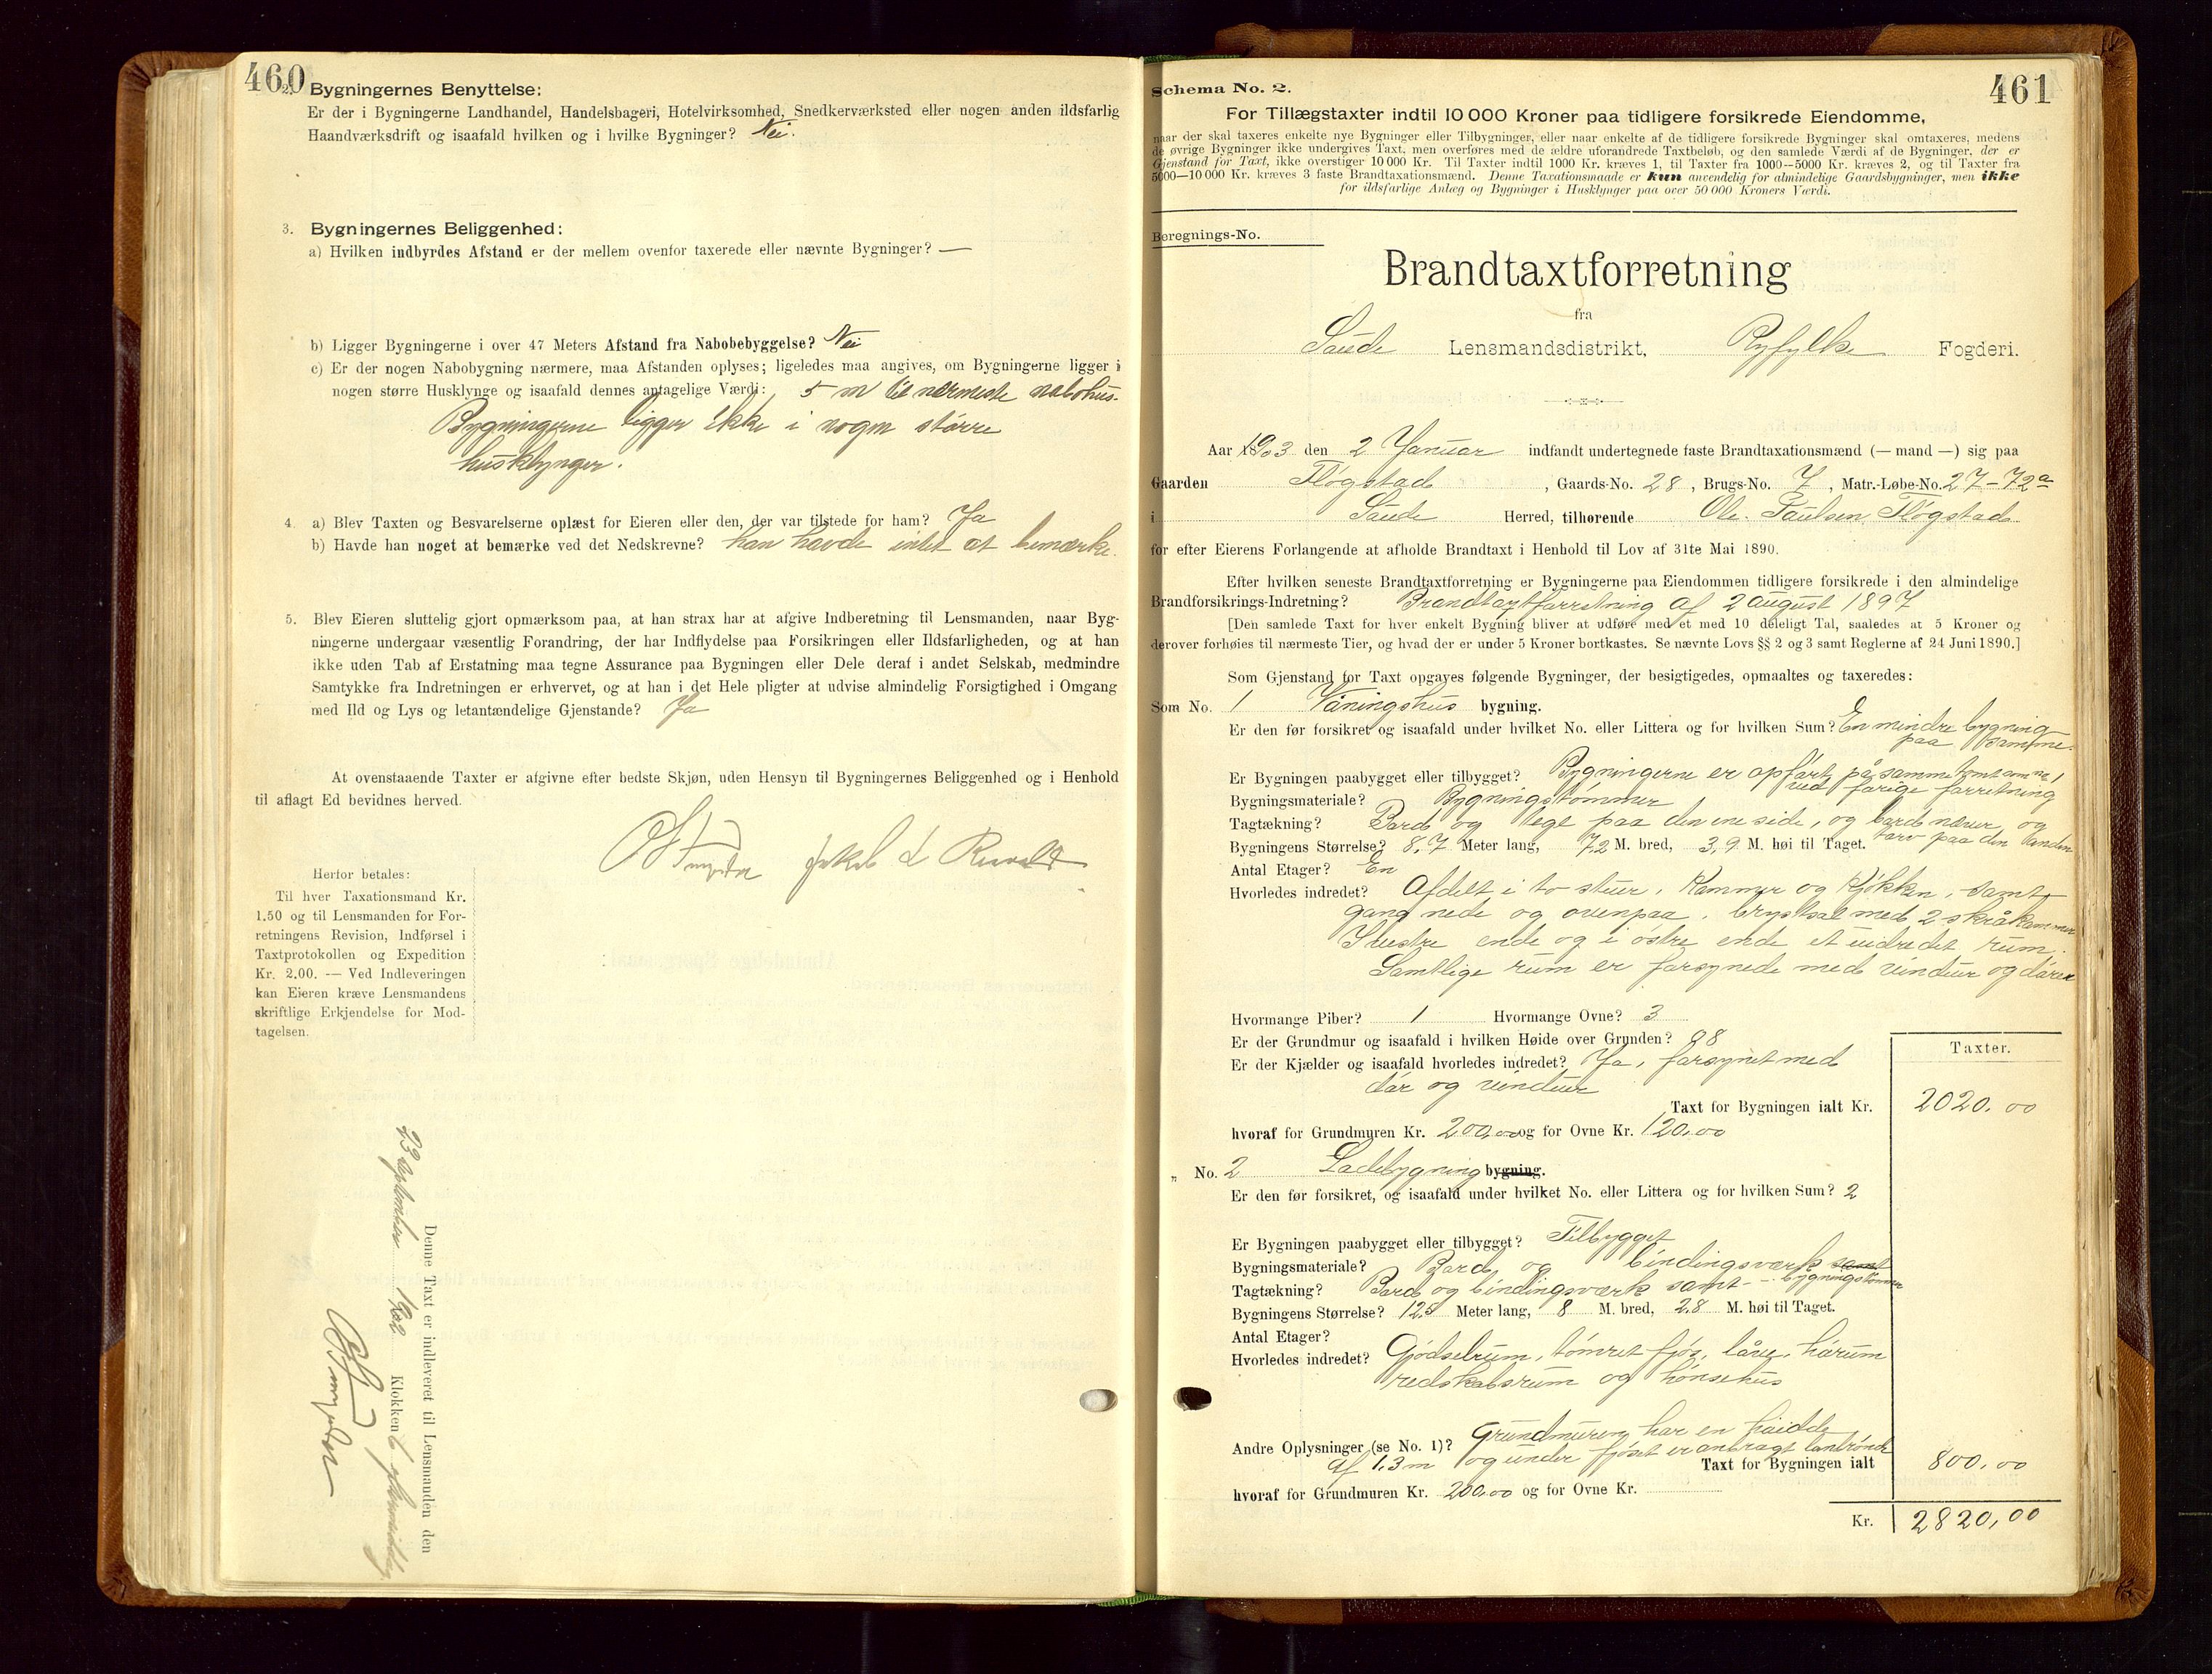 460
2. Bygningernes Benyttelse:
Er der i Bygningerne Landhandel, Handelsbageri, Hotelvirksomhed, Snedkerværksted eller nogen anden ildsfarlig
Haandværksdrift og isaafald hvilken og i hvilke Bygninger? Nei.
3. Bygningernes Beliggenhed:
a) Hvilken indbyrdes Afstand er der mellem ovenfor taxerede eller nævnte Bygninger? —
b) Ligger Bygningerne i over 47 Meters Afstand fra Nabobebyggelse? Nei
c) Er der nogen Nabobygning nærmere, maa Afstanden oplyses; ligeledes maa angives, om Bygningerne ligger i
nogen større Husklynge og isaafald dennes antagelige Værdi: 5 m til nærmeste nabohus.
Bygningerne ligger ikke i nogen større
husklynger.
4. a) Blev Taxten og Besvarelserne oplæst for Eieren eller den, der var tilstede for ham? Ja
b) Havde han noget at bemærke ved det Nedskrevne? han havde intet at bemærke.
5. Blev Eieren sluttelig gjort opmærksom paa, at han strax har at afgive Indberetning til Lensmanden, naar Byg-
ningerne undergaar væsentlig Forandring, der har Indflydelse paa Forsikringen eller Ildsfarligheden, og at han
ikke uden Tab af Erstatning maa tegne Assurance paa Bygningen eller Dele deraf i andet Selskab, medmindre
Samtykke fra Indretningen er erhvervet, og at han i det Hele pligter at udvise almindelig Forsigtighed i Omgang
med Ild og Lys og letantændelige Gjenstande? Ja
At ovenstaaende Taxter er afgivne efter bedste Skjøn, uden Hensyn til Bygningernes Beliggenhed og i Henhold
til aflagt Ed bevidnes herved.
Jakob L
Herfor betales:
Til hver Taxationsmand Kr.
1.50 og til Lensmanden for For-
retningens Revision, Indførsel i
Taxtprotokollen og Expedition
Kr. 2.00. — Ved Indleveringen
kan Eieren kræve Lensmandens
skriftlige Erkjendelse for Mod-
tagelsen.
Denne Taxt er indleveret til Lensmanden den
23 September 1902 Klokken 6
461
Schema No. 2.
For Tillægstaxter indtil 10 000 Kroner paa tidligere forsikrede Eiendomme,
naar der skal taxeres enkelte nye Bygninger eller Tilbygninger, eller naar enkelte af de tidligere forsikrede Bygninger skal omtaxeres, medens
de øvrige Bygninger ikke undergives Taxt, men overføres med de ældre uforandrede Taxtbeløb, og den samlede Værdi af de Bygninger, der er
Gjenstand for Taxt, ikke overstiger 10 000 Kr. Til Taxter indtil 1000 Kr. kræves 1, til Taxter fra 1000—5000 Kr. kræves 2, og til Taxter fra
5000—10 000 Kr. kræves 3 faste Brandtaxationsmænd. Denne Taxationsmaade er kun anvendelig for almindelige Gaardsbygninger, men ikke
for ildsfarlige Anlæg og Bygninger i Husklynger paa over 50 000 Kroners Værdi.
Beregnings-No.
Brandtaxtforretning
fra
Saude Lensmandsdistrikt, Ryfylke Fogderi.
Aar 1903 den 2 Januar indfandt undertegnede faste Brandtaxationsmænd (— mand —) sig paa
Gaarden Fløgstad, Gaards-No. 28, Brugs-No. 7, Matr.-Løbe-No. 27-72a
i Saude Herred, tilhørende Ole Paulsen Fløgstad
for efter Eierens Forlangende at afholde Brandtaxt i Henhold til Lov af 31te Mai 1890.
Efter hvilken seneste Brandtaxtforretning er Bygningerne paa Eiendommen tidligere forsikrede i den almindelige
Brandforsikrings-Indretning? Brandtaxtforretning af 2 august 1897
[Den samlede Taxt for hver enkelt Bygning bliver at udføre med et med 10 deleligt Tal, saaledes at 5 Kroner og
derover forhøies til nærmeste Tier, og hvad der er under 5 Kroner bortkastes. Se nævnte Lovs §§ 2 og 3 samt Reglerne af 24 Juni 1890.]
Som Gjenstand for Taxt opgaves følgende Bygninger, der besigtigedes, opmaaltes og taxeredes:
Som No. 1 Våningshus bygning.
Er den før forsikret og isaafald under hvilket No. eller Littera og for hvilken Sum? En mindre bygning
paa samme
Er Bygningen paabygget eller tilbygget? Bygningerne er opført på samme tomt som no 1
ved forige forretning
Bygningsmateriale? Bygningstømmer
Tagtækning? Bord og tegl paa den ene side, og bord næver og
torv paa den anden
Bygningens Størrelse? 8,7 Meter lang, 7,2 M. bred, 3,9 M. høi til Taget.
Antal Etager? En
Hvorledes indredet? Afdelt i to stuer, Kammer og Kjøkken, samt
gang nede og ovenpaa, brystsal med 2 skråkammer
I vestre ende og i østre ende et uidredet rum.
Samtlige rum er forsynede med vinduer og dører
Hvormange Piber? 1 Hvormange Ovne? 3
Er der Grundmur og isaafald i hvilken Høide over Grunden? 0,8
Er der Kjælder og isaafald hvorledes indredet? Ja, forsynet med
dør og vinduer
Taxter.
Taxt for Bygningen ialt Kr. 2020.00
hvoraf for Grundmuren Kr. 200.00 og for Ovne Kr. 120.00
" No. 2 Ladebygning bygning.
Er den før forsikret, og isaafald under hvilket No. eller Littera og for hvilken Sum? 2
Er Bygningen paabygget eller tilbygget? Tilbygget
Bygningsmateriale? Bord og bindingsværk samt
bygningstømmer
Tagtækning? Bord og bindingsværk samt
Bygningens Størrelse? 12.5 Meter lang, 8 M. bred, 2.8 M. høi til Taget.
Antal Etager?
Hvorledes indredet? Gjødselrum, tømret fjøs, låve, hørum
redskabsrum og hønsehus
Andre Oplysninger (se No. 1)? Grundmuren har en høide
af 1,3 m og under fjøset er anbragt
Taxt for Bygningen ialt 800.00
hvoraf for Grundmuren Kr. 200.00 og for Ovne Kr.
Kr. 2820,00